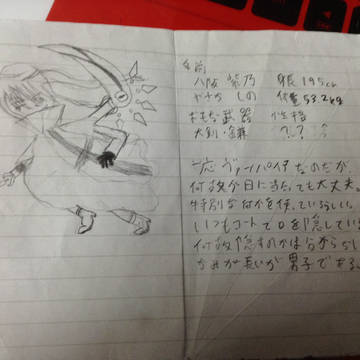 名前
八阪 紫乃 身長195cm
やさか しの 体重53.2kg
おもな武器 性格
大剣・鎌 ?.?
一応ヴァンパイアなのだが
何故か日に当たっても大丈夫
特別な何かを使っているらしい。
いつもコートで口を隠している
何故隠すのかは分からない
かみが長いが男子である。